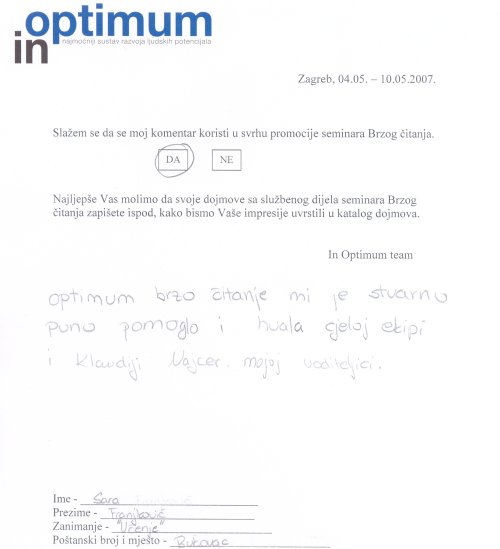 optimum
in
najmoćniji sustav razvoja ljudskih potencijala
Zagreb, 04.05. – 10.05.2007.
Slažem se da se moj komentar koristi u svrhu promocije seminara Brzog čitanja.
DA NE
Najljepše Vas molimo da svoje dojmove sa službenog dijela seminara Brzog
čitanja zapišete ispod, kako bismo Vaše impresije uvrstili u katalog dojmova.
In Optimum team
optimum brzo čitanje mi je stvarno
puno pomoglo i hvala cjeloj ekipi
i Klaudiji Vajcer. mojoj voditeljici.
Ime - Sara
Prezime - Franjković
Zanimanje - "Učenje"
Poštanski broj i mjesto - Bukovac